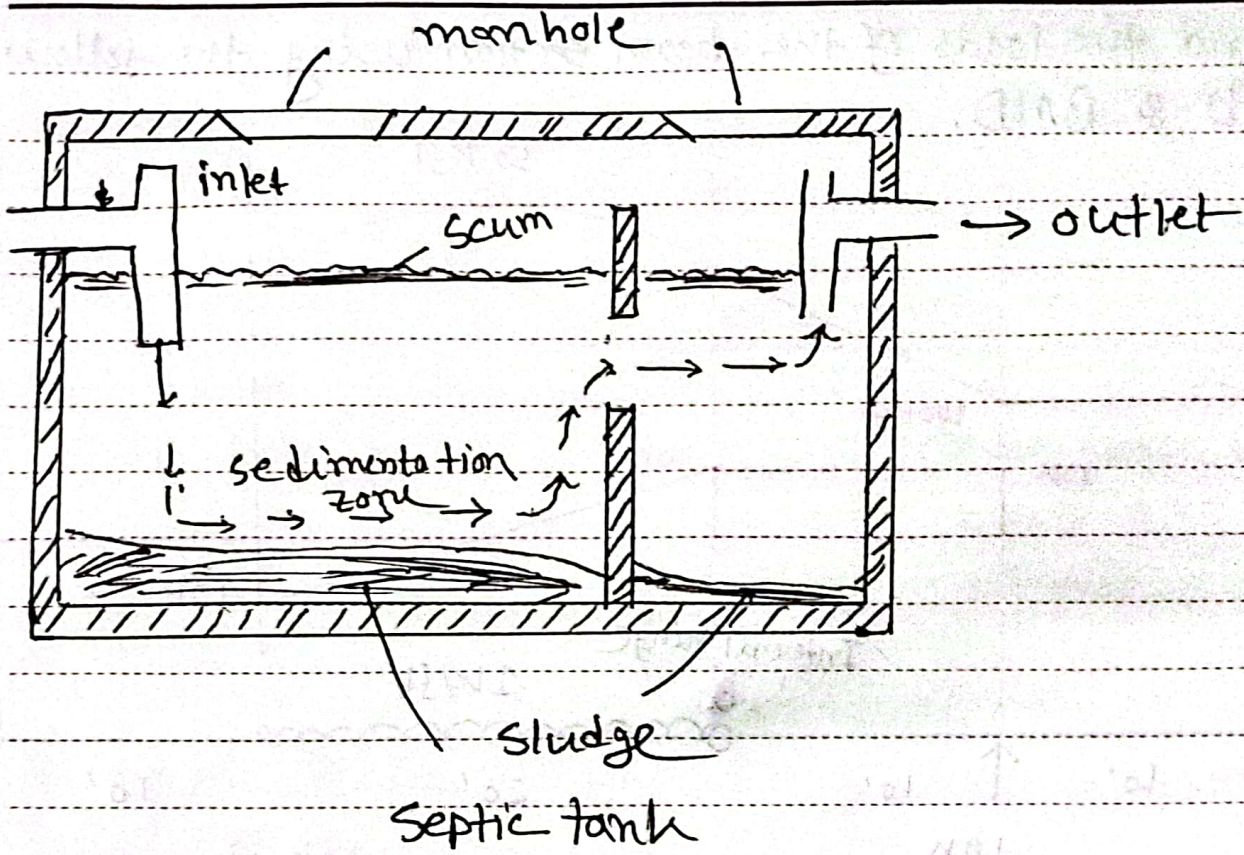 manhole
inlet
scum
→ outlet
sedimentation
zone
sludge
Septic tank